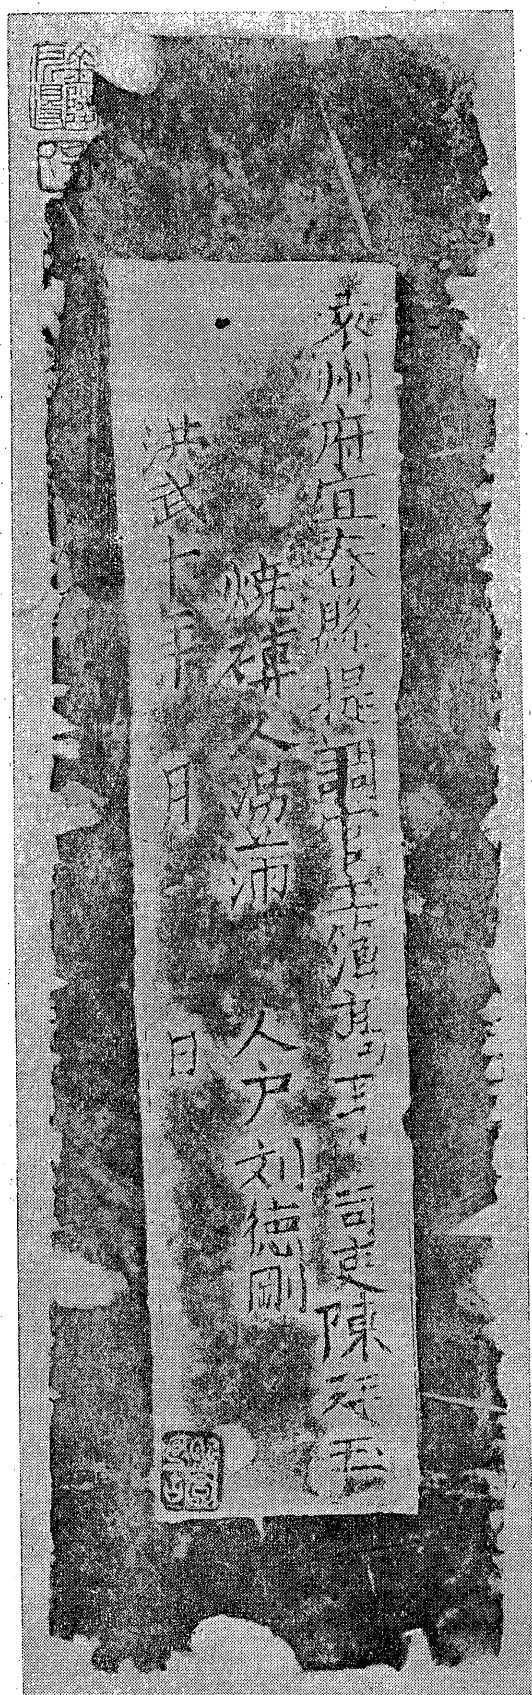 袁州府宜春縣提調官主簿高亨司吏陳廷玉
焼磚人 人户刘德剛
洪武十年 月 日